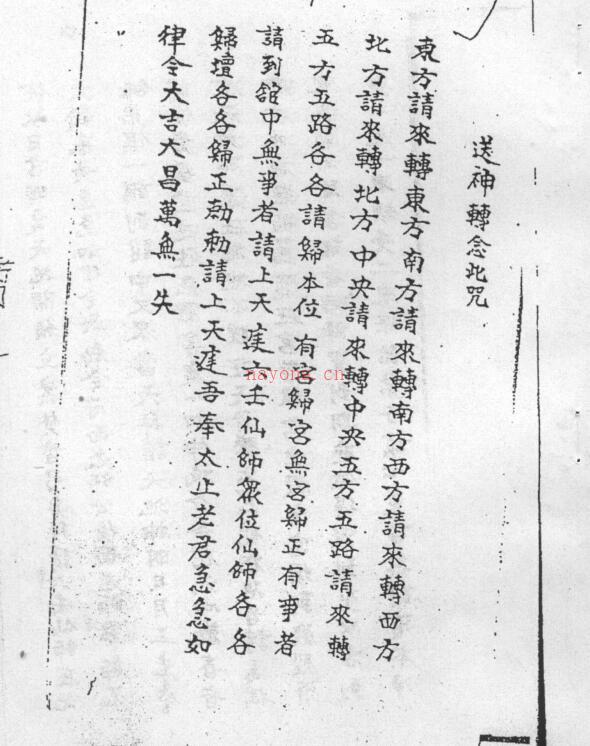 送神轉念此咒
東方請來轉東方南方請來轉南方西方請來轉西方
北方請來轉北方中央請來轉中央五方五路請來轉
五方五路各各請歸本位有宮歸宮無宮歸正有事者
請到舘中無事者請上天庭六壬仙師眾位仙師各各
歸壇各各歸正勅勅請上天庭吾奉太上老君急急如
律令大吉大昌萬無一失
nayong.cn